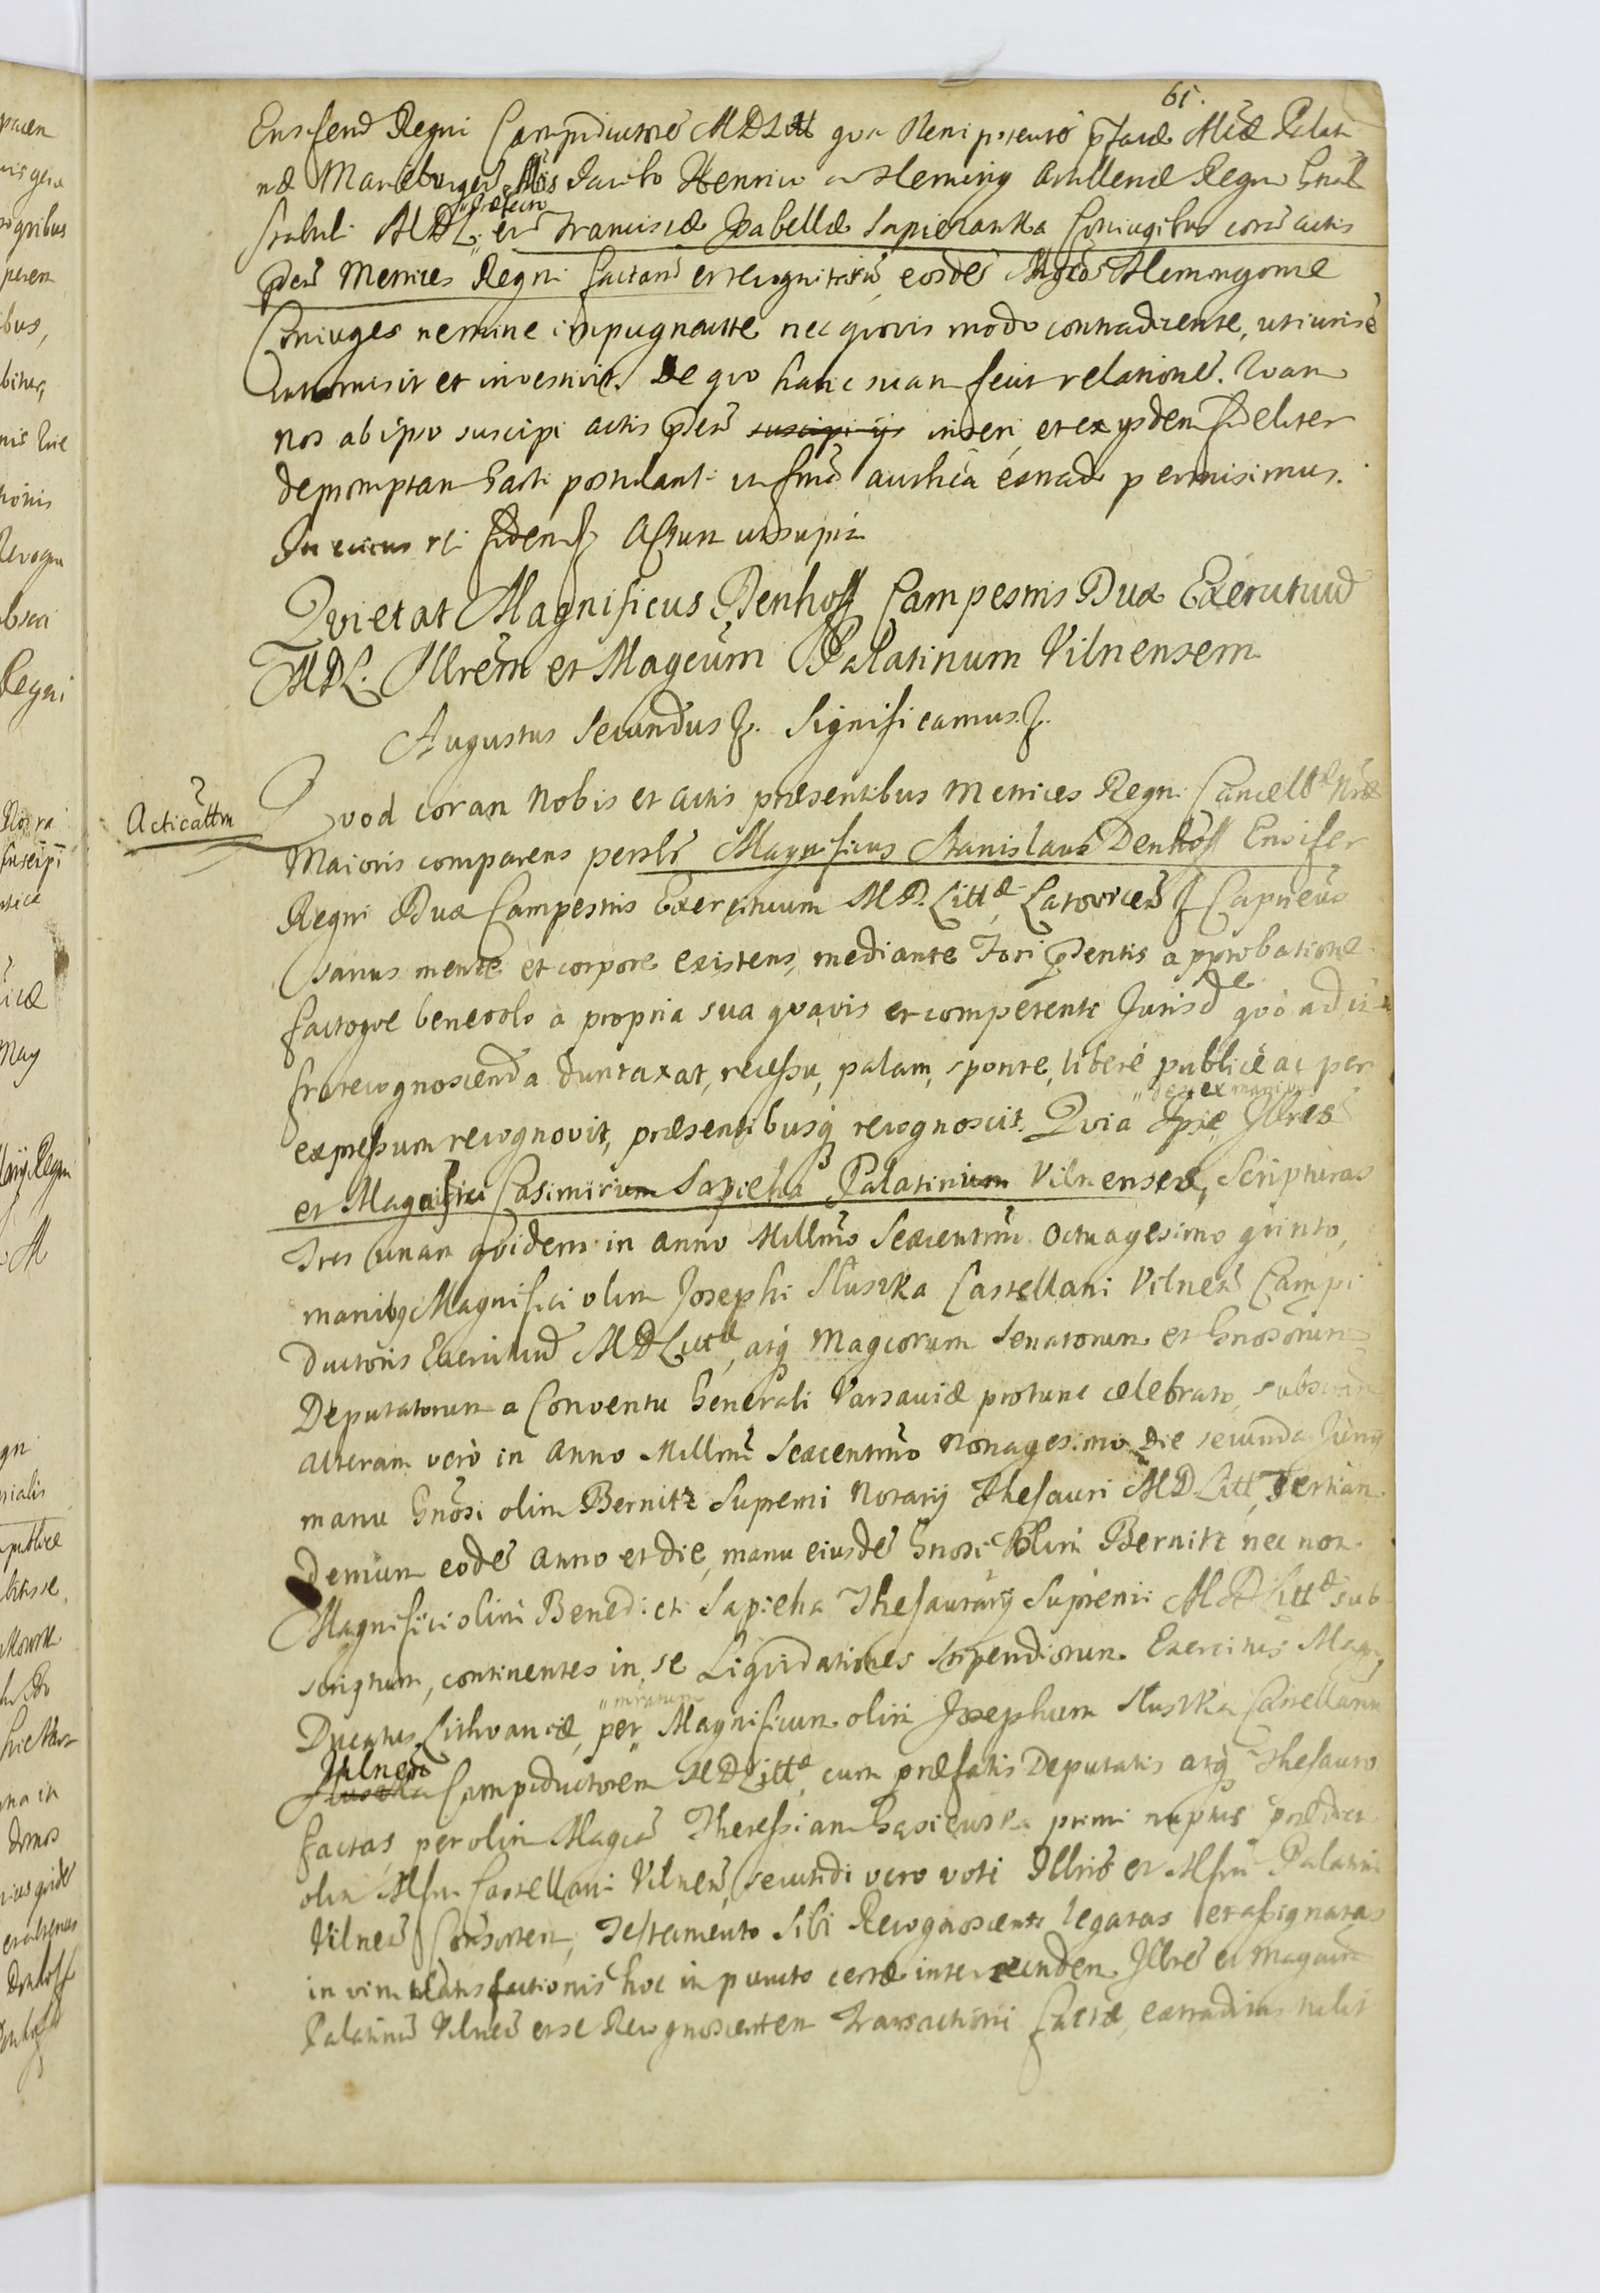 61.
Ensiferũ Regni Campiductore MDLitt qua Plenipotente
næ Marieburgeñ Jacobo Henrico a Fleming Artilleriæ Regni
præfecto
Stabuli MDL. et Franciscæ Isabellæ Sapiezanka Coniugibus corã actis
Metrices Regni eosdē Flemingome
Coniuges nemine impugnante nec quovis modo contradicente, uti
intromisit et investivit. De quo hanc suam fecit relationē. Quam
nos ab ipso suscipi actis inseri, et ex ijsdem fideliter
depromptam Parti postulanti permisimus.
In cuius rei fidem Actum ut supra
Quietat Magnificus Denhoff Campestris Dux Exercituũ
MDL. Illrem et Magcum Palatinum Vilnensem
Augustus Secundus. Significamus.
Acticattm
Quod coram Nobis et actis præsentibus Metrices Regni Cancellæ Nræ
Maioris comparens perslr Magnificus Stanislaus Denhoff Ensifer
Regni Dux Campestris Exercituum M.D. Littæ, Latoviceñ Capneus
sanus mente et corpore existens, mediante Fori approbatione
factoque benevolo a propria sua quavis et competenti Jurisde quo ad in-
frarecognoscenda duntaxat, recessu, palam, sponte, libere publicè ac per
expressum recognovit, præsentibusq recognoscit. Quia Ipse Illres
et Magnifici Casimirum Sapieha Palatinum Vilnensem, Scripturas
Tres unam quidem in anno Millmo Sexcentmo Octuagesimo quinto,
manibq Magnifici olim Josephi Sluszka Castellani Vilneñ Campi
ductoris Exercituũ MDLittæ, atq Magcorum Senatorum et Gnosorum
Deputatorum a Conventu Generali Varsaviæ protunc celebrato,
alteram verò in Anno Millmo Sexcentmo Nonagesimo Die secunda Junij
manu Gnosi olim Bernitz Supremi Notarij Thesauri MDLitt, Tertiam
demum eodē anno et die, manu eiusdē Gnosi olim Bernitz nec non
Magnifici olim Benedicti Sapieha Thesaurarij Supremi MDLittæ sub
scriptam, continentes in se Liquidationes stipendiorum Exercitus Magni
Ducatus Lithvaniæ, per Magnificum olim Josephum Sluszka Castellanum
Vilneñ
Campiductorem MDLittæ, cum præfatis Deputatis atq Thesauro
factas, per olim Magcã Theressiam Gąsiewska primi nuptus
olim Castellani Vilneñ, secundi vero voti Illris et Palatini
Vilneñ Consortem, Testamento Sibi Recognoscenti legatas et assignatas
in vim satisfactionis hoc in puncto certæ inter eundem Illrē et Magcum
Palatinũ Vilneñ et se Recognoscentem Transactioni factæ, extraditas